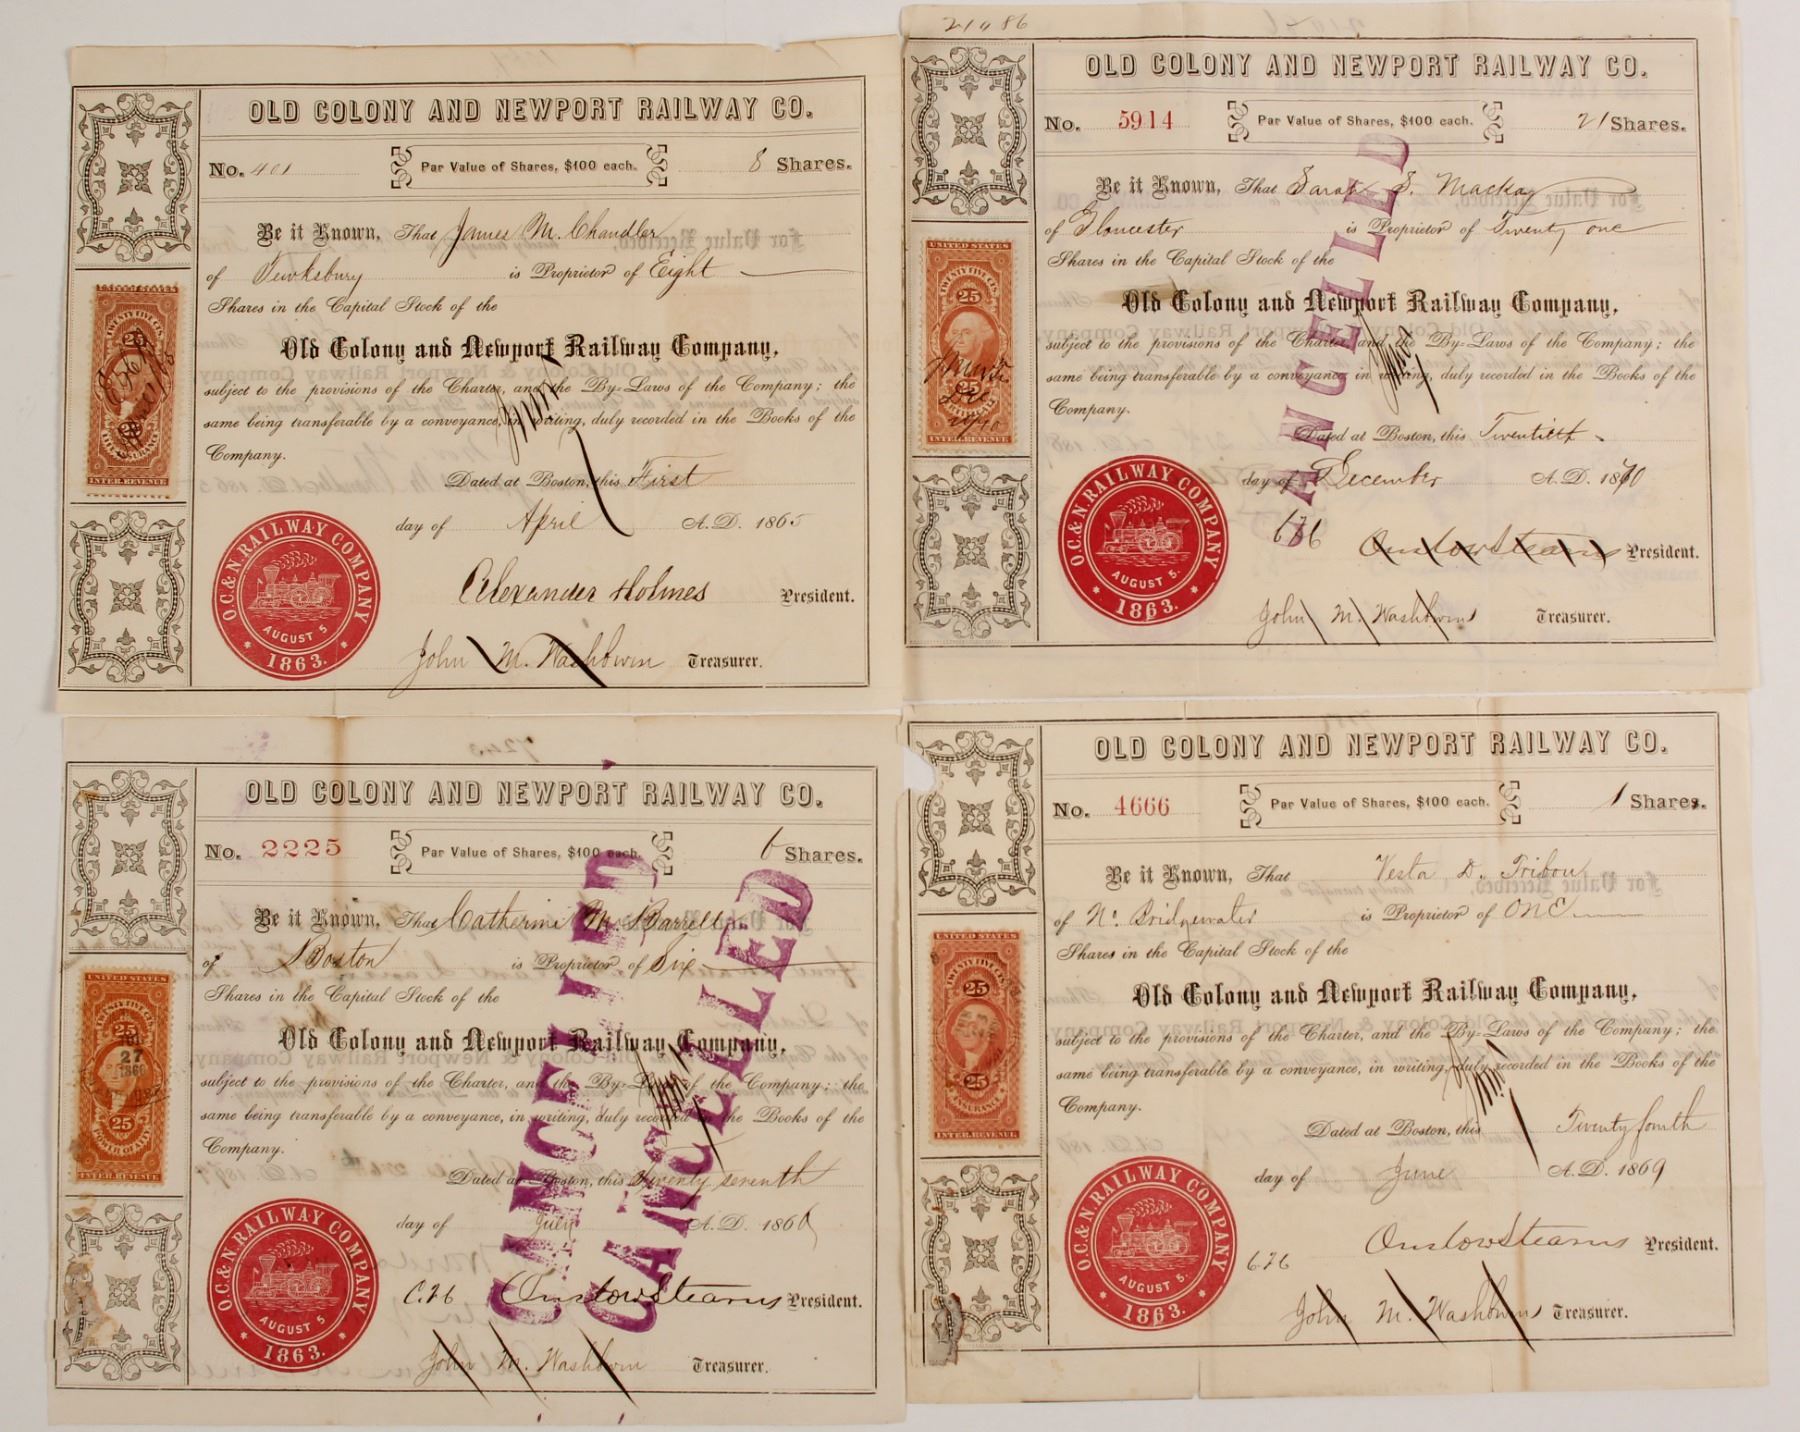 OLD COLONY AND NEWPORT RAILWAY CO.
No. 401 Par Value of Shares, $100 each. 8 Shares.
Be it Known, That James M. Chandler
of Tewksbury is Proprietor of Eight
Shares in the Capital Stock of the
Old Colony and Newport Railway Company,
subject to the provisions of the Charter, and the By-Laws of the Company; the
same being transferable by a conveyance, in writing, duly recorded in the Books of the
Company.
Dated at Boston, this First
day of April A.D. 1865
Alexander Holmes President.
John M. Washburn Treasurer.
TWENTY FIVE CTS.
INTER. REVENUE
O.C. & N. RAILWAY COMPANY
AUGUST 5
1863.
21986
OLD COLONY AND NEWPORT RAILWAY CO.
No. 5914 Par Value of Shares, $100 each. 21 Shares.
Be it Known, That Sarah S. Mackay
of Gloucester is Proprietor of Twenty one
Shares in the Capital Stock of the
Old Colony and Newport Railway Company,
subject to the provisions of the Charter, and the By-Laws of the Company; the
same being transferable by a conveyance in writing, duly recorded in the Books of the
Company.
Dated at Boston, this Twentieth
day of December A.D. 1870
Onslow Stearns President.
John M. Washburn Treasurer.
CANCELLED
UNITED STATES
TWENTY FIVE CTS.
25
25
INTER. REVENUE
O.C. & N. RAILWAY COMPANY
AUGUST 5.
1863.
OLD COLONY AND NEWPORT RAILWAY CO.
No. 2225 Par Value of Shares, $100 each. 6 Shares.
Be it Known, That Catherine M. Barrett
of Boston is Proprietor of Six
Shares in the Capital Stock of the
Old Colony and Newport Railway Company,
subject to the provisions of the Charter, and the By-Laws of the Company; the
same being transferable by a conveyance, in writing, duly recorded in the Books of the
Company.
Dated at Boston, this Twenty seventh
day of July A.D. 1866
Onslow Stearns President.
John M. Washburn Treasurer.
CANCELLED
CANCELLED
UNITED STATES
TWENTY FIVE CTS.
25
27
1866
25
POWER OF ATT'Y
INTER. REVENUE
O.C. & N. RAILWAY COMPANY
AUGUST 5
1863.
OLD COLONY AND NEWPORT RAILWAY CO.
No. 4666 Par Value of Shares, $100 each. 1 Shares.
Be it Known, That Vesta D. Tribou
of No. Bridgewater is Proprietor of ONE
Shares in the Capital Stock of the
Old Colony and Newport Railway Company,
subject to the provisions of the Charter, and the By-Laws of the Company; the
same being transferable by a conveyance, in writing, duly recorded in the Books of the
Company.
Dated at Boston, this Twenty fourth
day of June A.D. 1869
Onslow Stearns President.
John M. Washburn Treasurer.
UNITED STATES
TWENTY FIVE CTS.
25
25
INSURANCE
INTER. REVENUE
O.C. & N. RAILWAY COMPANY
AUGUST 5.
1863.